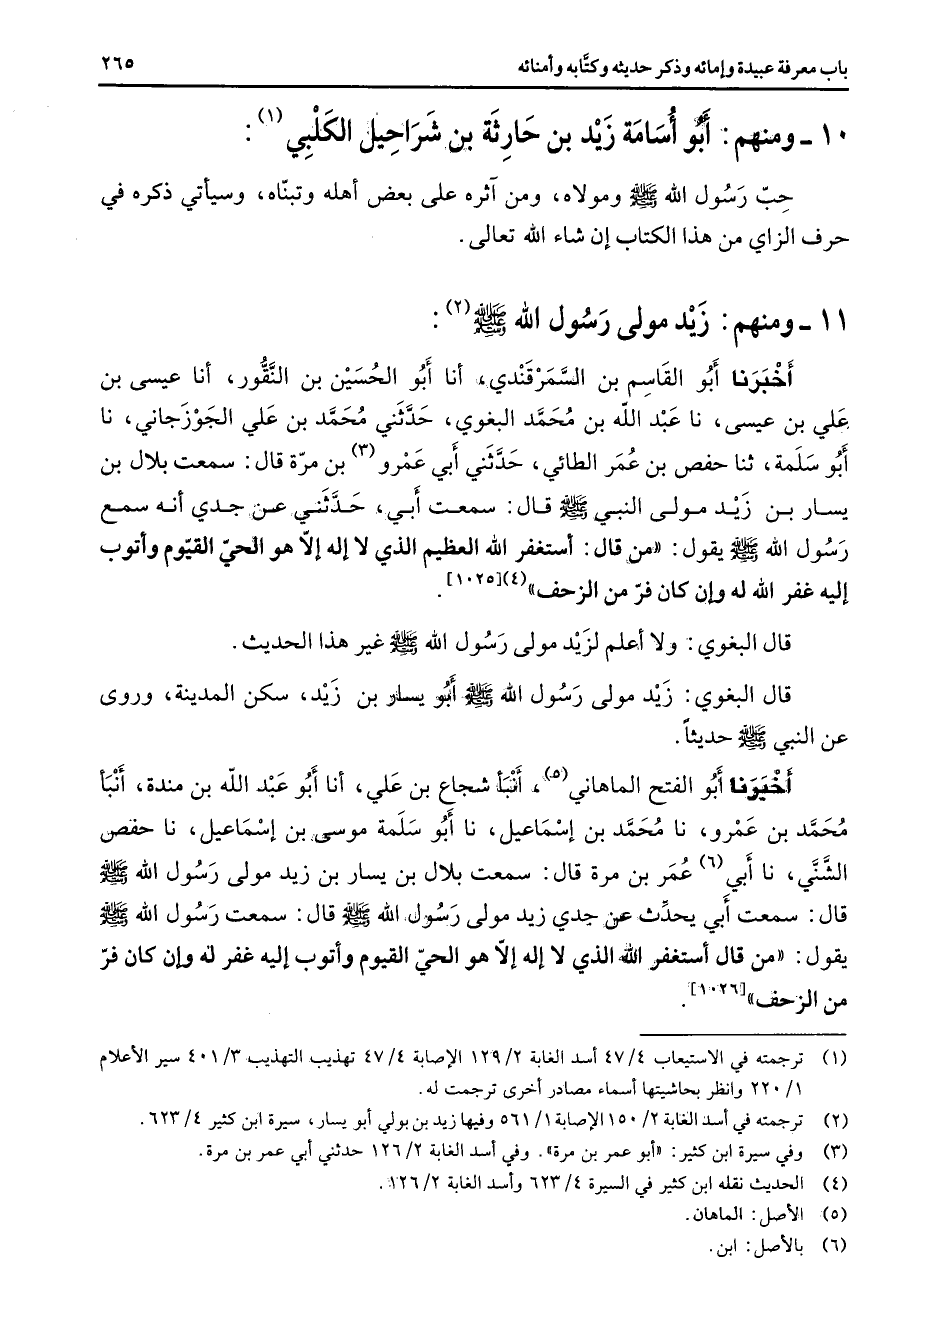 باب معرفة عبيدة وإمائه وذكر حديثه وكتَّابه وأمنائه ٢٦٥
١٠ ـ ومنهم: أَبُو أُسَامَة زَيْد بن حَارِثَة بن شَرَاحِيل الكَلْبِي(١):
حِبّ رَسُول الله ﷺ ومولاه، ومن آثره على بعض أهله وتبنّاه، وسيأتي ذكره في
حرف الزاي من هذا الكتاب إن شاء الله تعالى.
١١ ـ ومنهم: زَيْد مولى رَسُول الله ﷺ(٢):
أَخْبَرَنا أَبُو القَاسِم بن السَّمَرْقَندي، أنا أَبُو الحُسَيْن بن النَّقُّور، أنا عيسى بن
عَلي بن عيسى، نا عَبْد اللّه بن مُحَمَّد البغوي، حَدَّثَني مُحَمَّد بن عَلي الجَوْزَجاني، نا
أَبُو سَلَمة، ثنا حفص بن عُمَر الطائي، حَدَّثَني أبي عَمْرو(٣) بن مرّة قال: سمعت بلال بن
يسار بن زَيْد مولى النبي ﷺ قال: سمعت أَبي، حَدَّثَني عن جدي أنه سمع
رَسُول الله ﷺ يقول: «من قال: أستغفر الله العظيم الذي لا إله إلّا هو الحيّ القيّوم وأتوب
إليه غفر الله له وإن كان فرّ من الزحف»(٤)[١٠٢٥].
قال البغوي: ولا أعلم لزَيْد مولى رَسُول الله ﷺ غير هذا الحديث.
قال البغوي: زَيْد مولى رَسُول الله ﷺ أَبُو يسار بن زَيْد، سكن المدينة، وروى
عن النبي ﷺ حديثاً.
أَخْبَرَنا أَبُو الفتح الماهاني(٥)، أَنْبَأ شجاع بن علي، أنا أَبُو عَبْد اللّه بن مندة، أَنْبَأ
مُحَمَّد بن عَمْرو، نا مُحَمَّد بن إسْماعيل، نا أَبُو سَلَمة موسى بن إسْماعيل، نا حفص
الشَّنَّي، نا أَبي(٦) عُمَر بن مرة قال: سمعت بلال بن يسار بن زيد مولى رَسُول الله ﷺ
قال: سمعت أَبي يحدِّث عن جدي زيد مولى رَسُول الله ﷺ قال: سمعت رَسُول الله ﷺ
يقول: «من قال أستغفر الله الذي لا إله إلّا هو الحيّ القيوم وأتوب إليه غفر له وإن كان فرّ
من الزحف»[١٠٢٦].
(١) ترجمته في الاستيعاب ٤/ ٤٧ أسد الغابة ٢/ ١٢٩ الإصابة ٤/ ٤٧ تهذيب التهذيب ٣/ ٤٠١ سير الأعلام
١/ ٢٢٠ وانظر بحاشيتها أسماء مصادر أخرى ترجمت له.
(٢) ترجمته في أسد الغابة ٢/ ١٥٠ الإصابة ١/ ٥٦١ وفيها زيد بن بولي أبو يسار، سيرة ابن كثير ٤/ ٦٢٣.
(٣) وفي سيرة ابن كثير: «أبو عمر بن مرة». وفي أسد الغابة ٢/ ١٢٦ حدثني أبي عمر بن مرة.
(٤) الحديث نقله ابن كثير في السيرة ٤/ ٦٢٣ وأسد الغابة ٢/ ١٢٦.
(٥) الأصل: الماهان.
(٦) بالأصل: ابن.